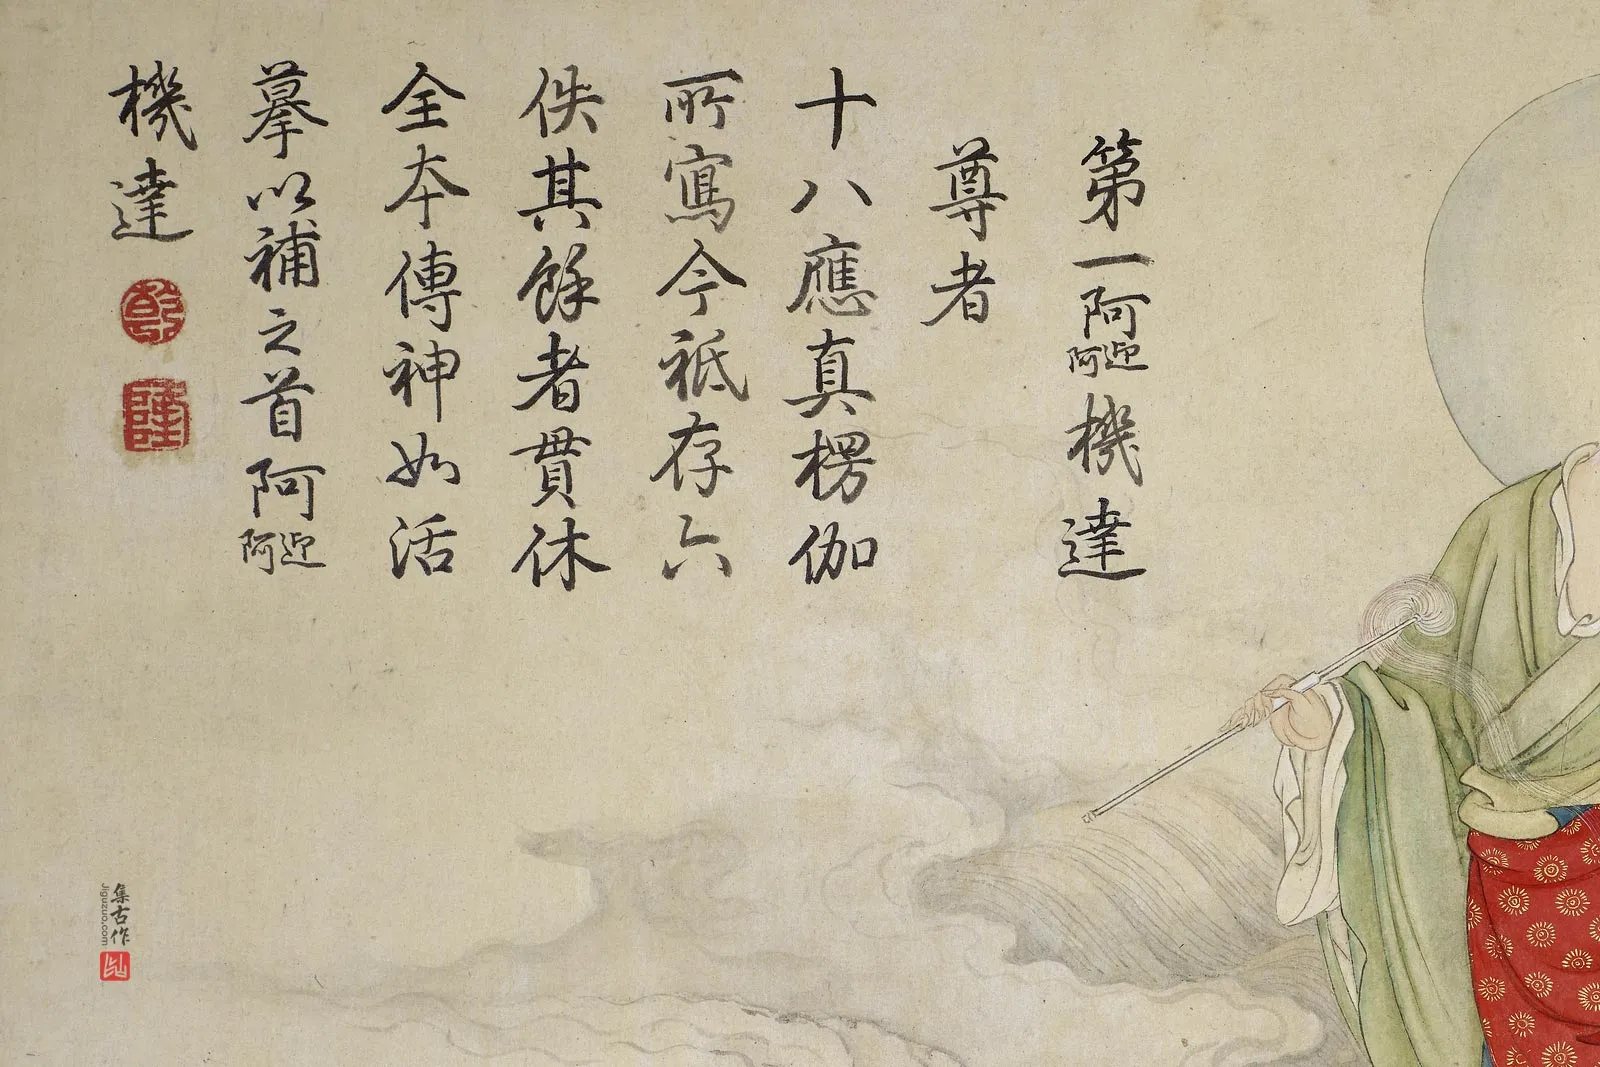 第一阿阿迎機達
尊者
十八應真楞伽
所寫今祗存六
佚其餘者貫休
全本傳神如活
摹以補之首阿阿迎
機達
乾
隆
集古作
Jiguzuo.com